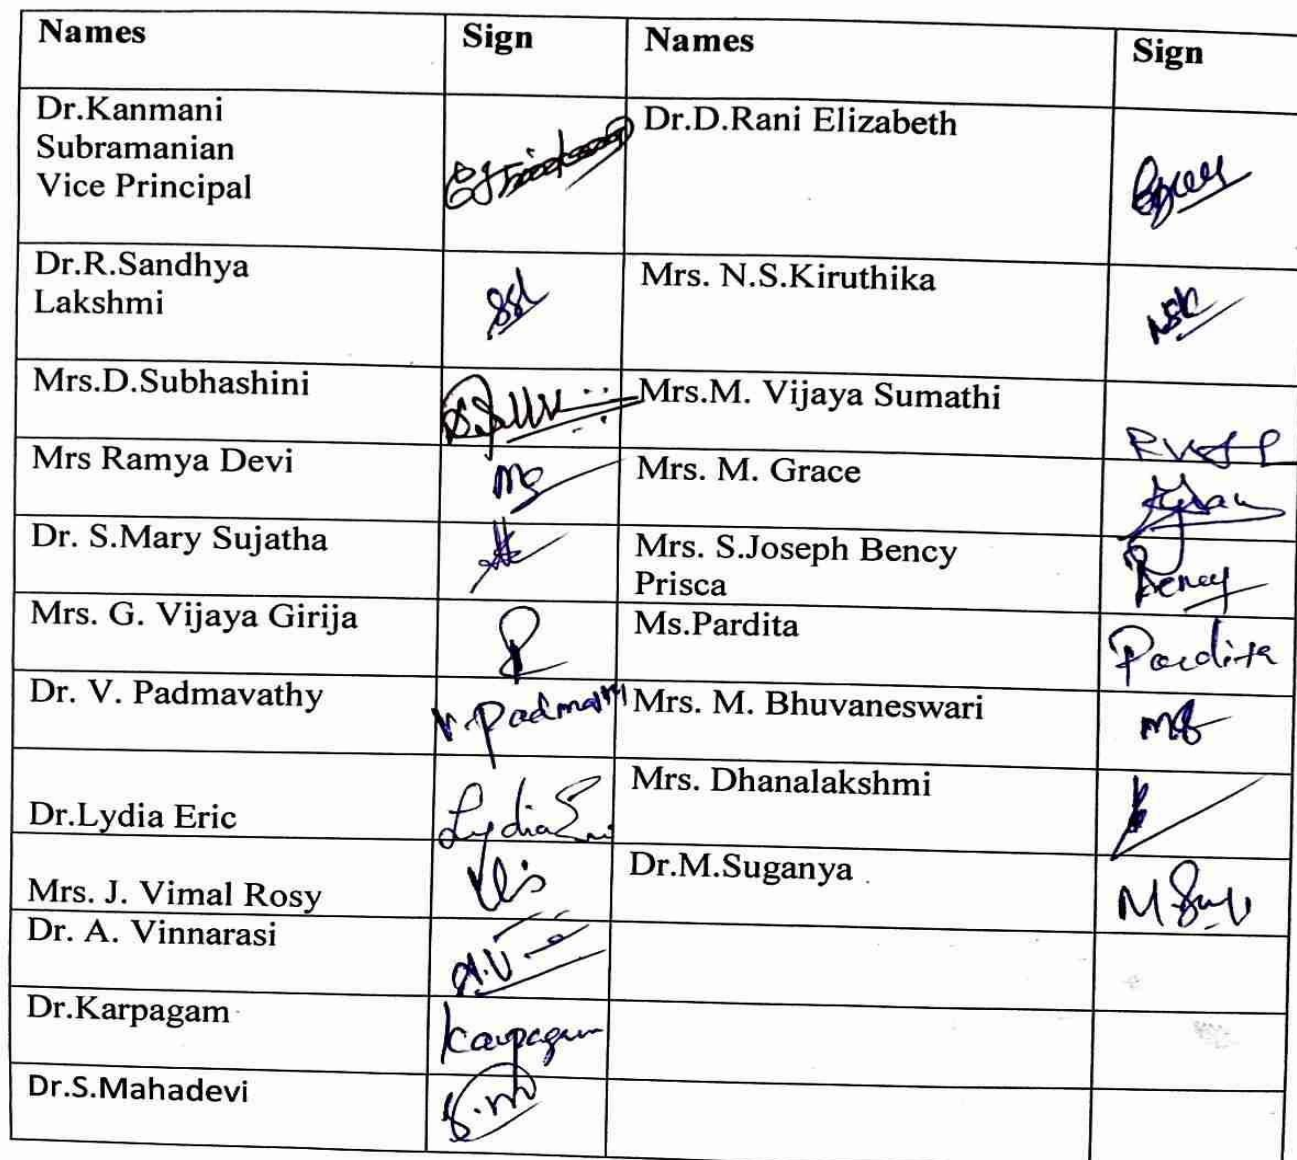 Names Sign Names Sign
Dr.Kanmani
Subramanian
Vice Principal
Dr.D.Rani Elizabeth
Dr.R.Sandhya
Lakshmi
Mrs. N.S.Kiruthika
NSK
Mrs.D.Subhashini
Mrs.M. Vijaya Sumathi
Mrs Ramya Devi
Mrs. M. Grace
Dr. S.Mary Sujatha
Mrs. S.Joseph Bency
Prisca
Bency
Mrs. G. Vijaya Girija
Ms.Pardita
Pardita
Dr. V. Padmavathy
Mrs. M. Bhuvaneswari
MB
Dr.Lydia Eric
Lydia
Mrs. Dhanalakshmi
Mrs. J. Vimal Rosy
Dr.M.Suganya
Dr. A. Vinnarasi
A.V
Dr.Karpagam
Karpagam
Dr.S.Mahadevi
S.M